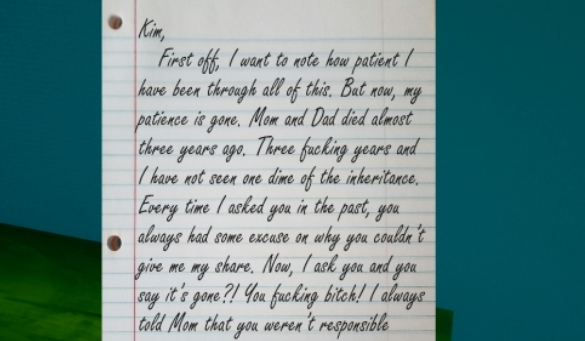 Kim,
First off, I want to note how patient I
have been through all of this. But now, my
patience is gone. Mom and Dad died almost
three years ago. Three fucking years and
I have not seen one dime of the inheritance.
Every time I asked you in the past, you
always had some excuse on why you couldn't
give me my share. Now, I ask you and you
say it's gone?! You fucking bitch! I always
told Mom that you weren't responsible